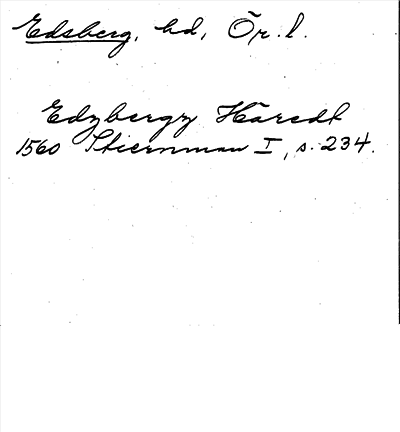 Edsberg, hd, Ör. l.
Edzbergz Häredt
1560 Stiernman I, s. 234.